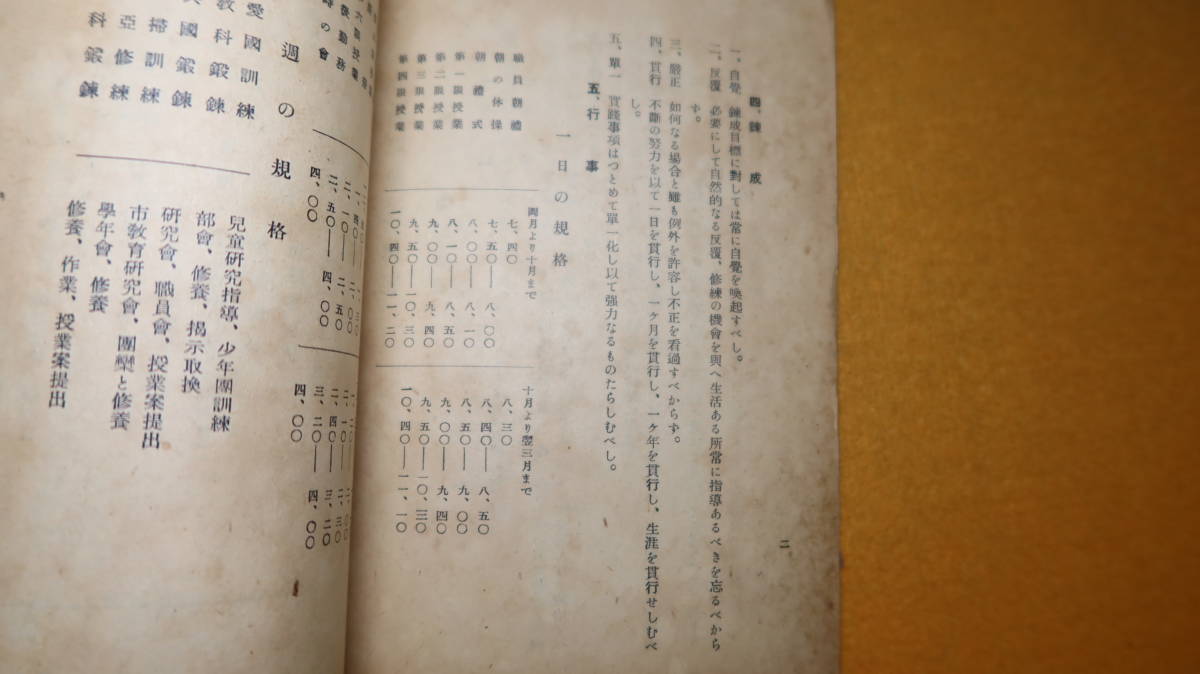 二
四、錬成
一、自覺 錬成目標に對しては常に自覺を喚起すべし。
二、反覆 必要にして自然的なる反覆、修練の機會を與へ生活ある所常に指導あるべきを忘るべから
ず。
三、嚴正 如何なる場合と雖も例外を許容し不正を看過すべからず。
四、貫行 不斷の努力を以て一日を貫行し、一ヶ月を貫行し、一ヶ年を貫行し、生涯を貫行せしむべ
し。
五、單一 實踐事項はつとめて單一化し以て強力なるものたらしむべし。
五、行事
一日の規格
四月より十月まで 十月より翌三月まで
職員朝禮 七、四〇 八、三〇
朝の体操 七、五〇──八、〇〇 八、四〇──八、五〇
朝禮式 八、〇〇──八、一〇 八、五〇──九、〇〇
第一限授業 八、一〇──八、五〇 九、〇〇──九、四〇
第二限授業 九、〇〇──九、四〇 九、五〇──一〇、三〇
第三限授業 九、五〇──一〇、三〇 一〇、四〇──一一、一〇
第四限授業 一〇、四〇──一一、二〇
二、一〇──二、五〇
二、五〇──四、〇〇 三、二〇──四、〇〇
四、〇〇 四、〇〇
週の規格
愛國訓練 兒童研究指導、少年團訓練
教科鍛錬 部會、修養、揭示取換
國鍛錬 研究會、職員會、授業案提出
掃訓練 市教育研究會、團欒と修養
亞修練 學年會、修養
科鍛錬 修養、作業、授業案提出